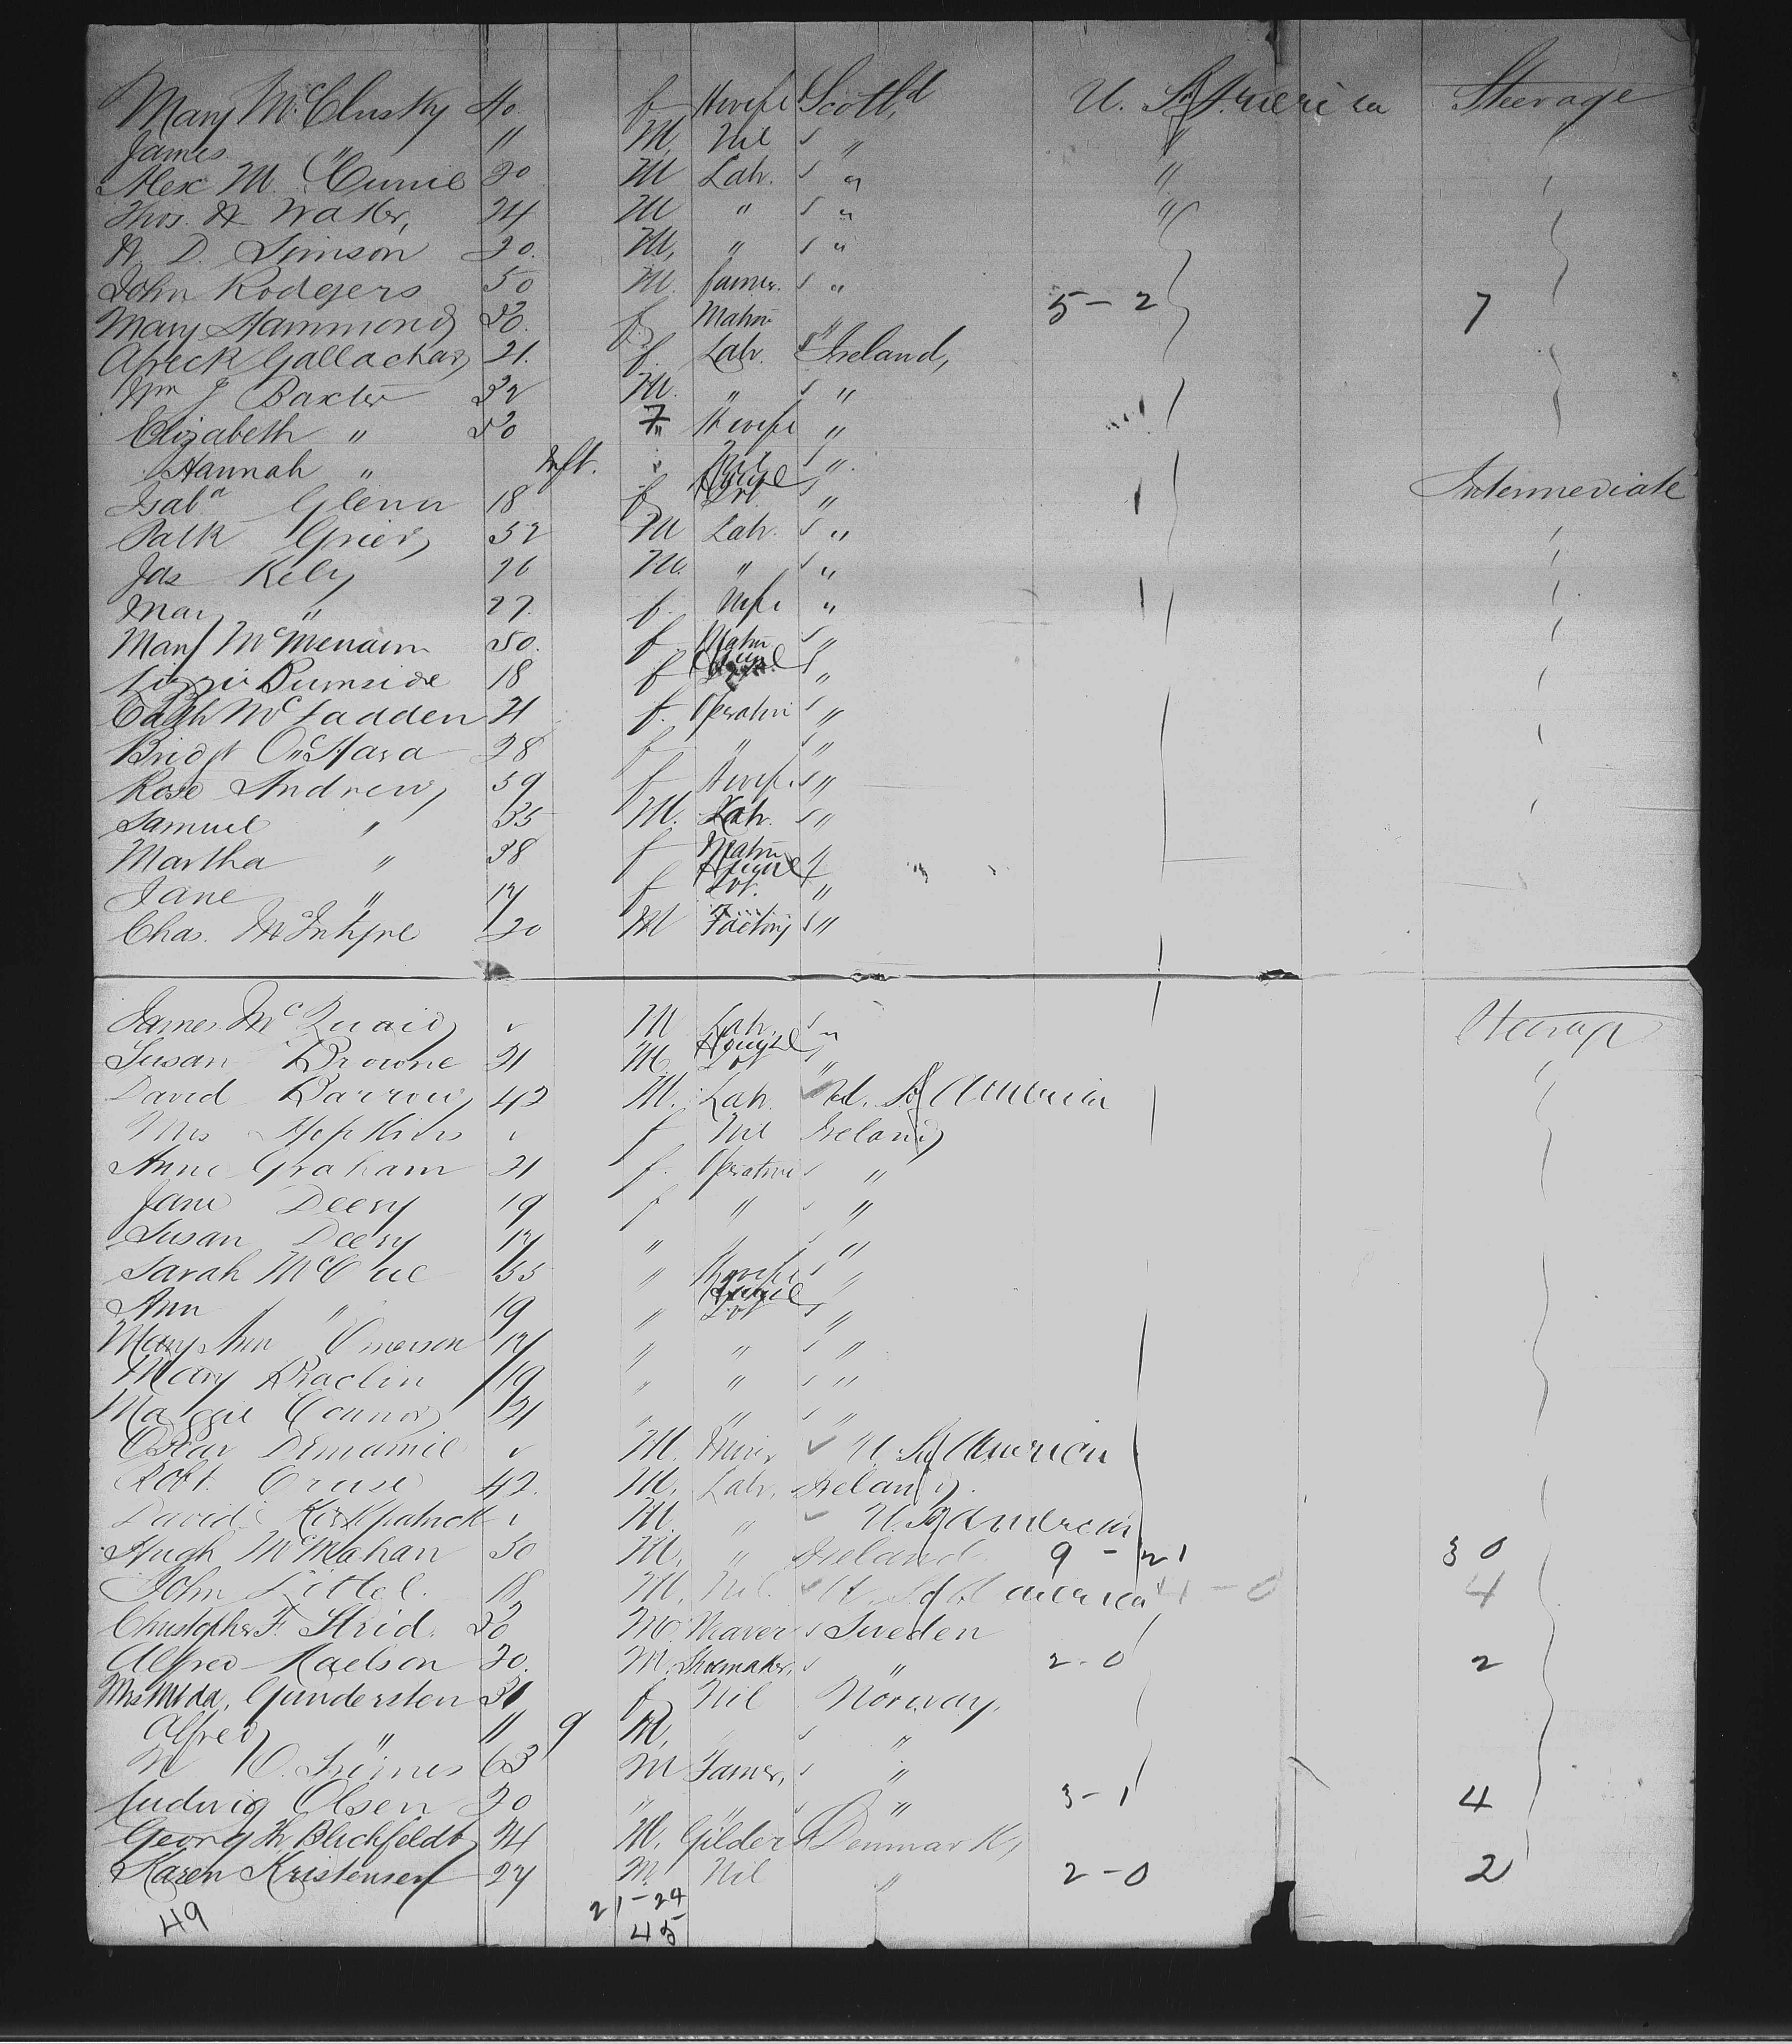 Mary McClusky 40. f Hwife Scotld U. S. of America Steerage
James " 11 M. Nil " "
Alex M 20 M Labr. " "
Thos. A Walker, 24 M " " "
A. D. Simson 20. M. " "
John Rodgers 50 M. farmer. " 5 - 2 7
Mary Hammond 30. f Matrn "
Gallachar 21. f. Labr. Ireland,
Wm J Baxter 32 M. " "
Elizabeth " 30 F " Hwife "
Hannah " Inft. " Nil "
Isaba Glenn 18 f Svt " Intermediate
Patk Grier 52 M Labr. "
Jas Kely 26 M. " "
Mary " 27. f. Wife "
Mary McMenaim 50. f Matrn "
Lizzie Burnside 18 f "
Cath McFadden 21 f. Operative "
Bridgt O'Hara 28 f " "
Rose Andrew 59 f Hwife "
Samuel " 35 M. Labr. "
Martha " 38 f Matrn "
Jane " 17 f Svt. "
Chas. McIntyre 20 M Factory "
James McQuaid M Labr. " Steerage
Susan Browne 21 M. Svt "
David Barrow 42 M. Labr. U. S. of America
Mrs Hopkins f Nil Ireland
Anne Graham 21 f. Operative "
Jane Deery 19 f " "
Susan Deery 17 " " "
Sarah McCue 55 " Hwife "
Ann " 19 " Svt "
Mary Ann Emerson 17 " " "
Mary Braclin 19 " " "
Maggie Connor 21 " " "
Oscar M. U. S. of America
Robt. Cruse 42. M. Labr. Ireland.
David Kirkpatrick M. " U. S. of America
Hugh McMahan 50 M. " Ireland 9 - 21 30
John Littel. 18 M. Nil. U. S. of America 4 - 0 4
Christopher F. Strid. 30 M. Weaver Sweden
Alfred Kaelson 20. M. Shoemaker. " 2 - 0 2
Mrs Gunderston 31 f Nil Norway.
Alfred " 11 9 M. "
63 M Farmer, "
Ludwig Olsen 20 " " " 3 - 1 4
Georg Th. Blichfeldt 24 M. Gilder Denmark,
Karen Kristensen 27 M. Nil " 2 - 0 2
49 21 - 24
45